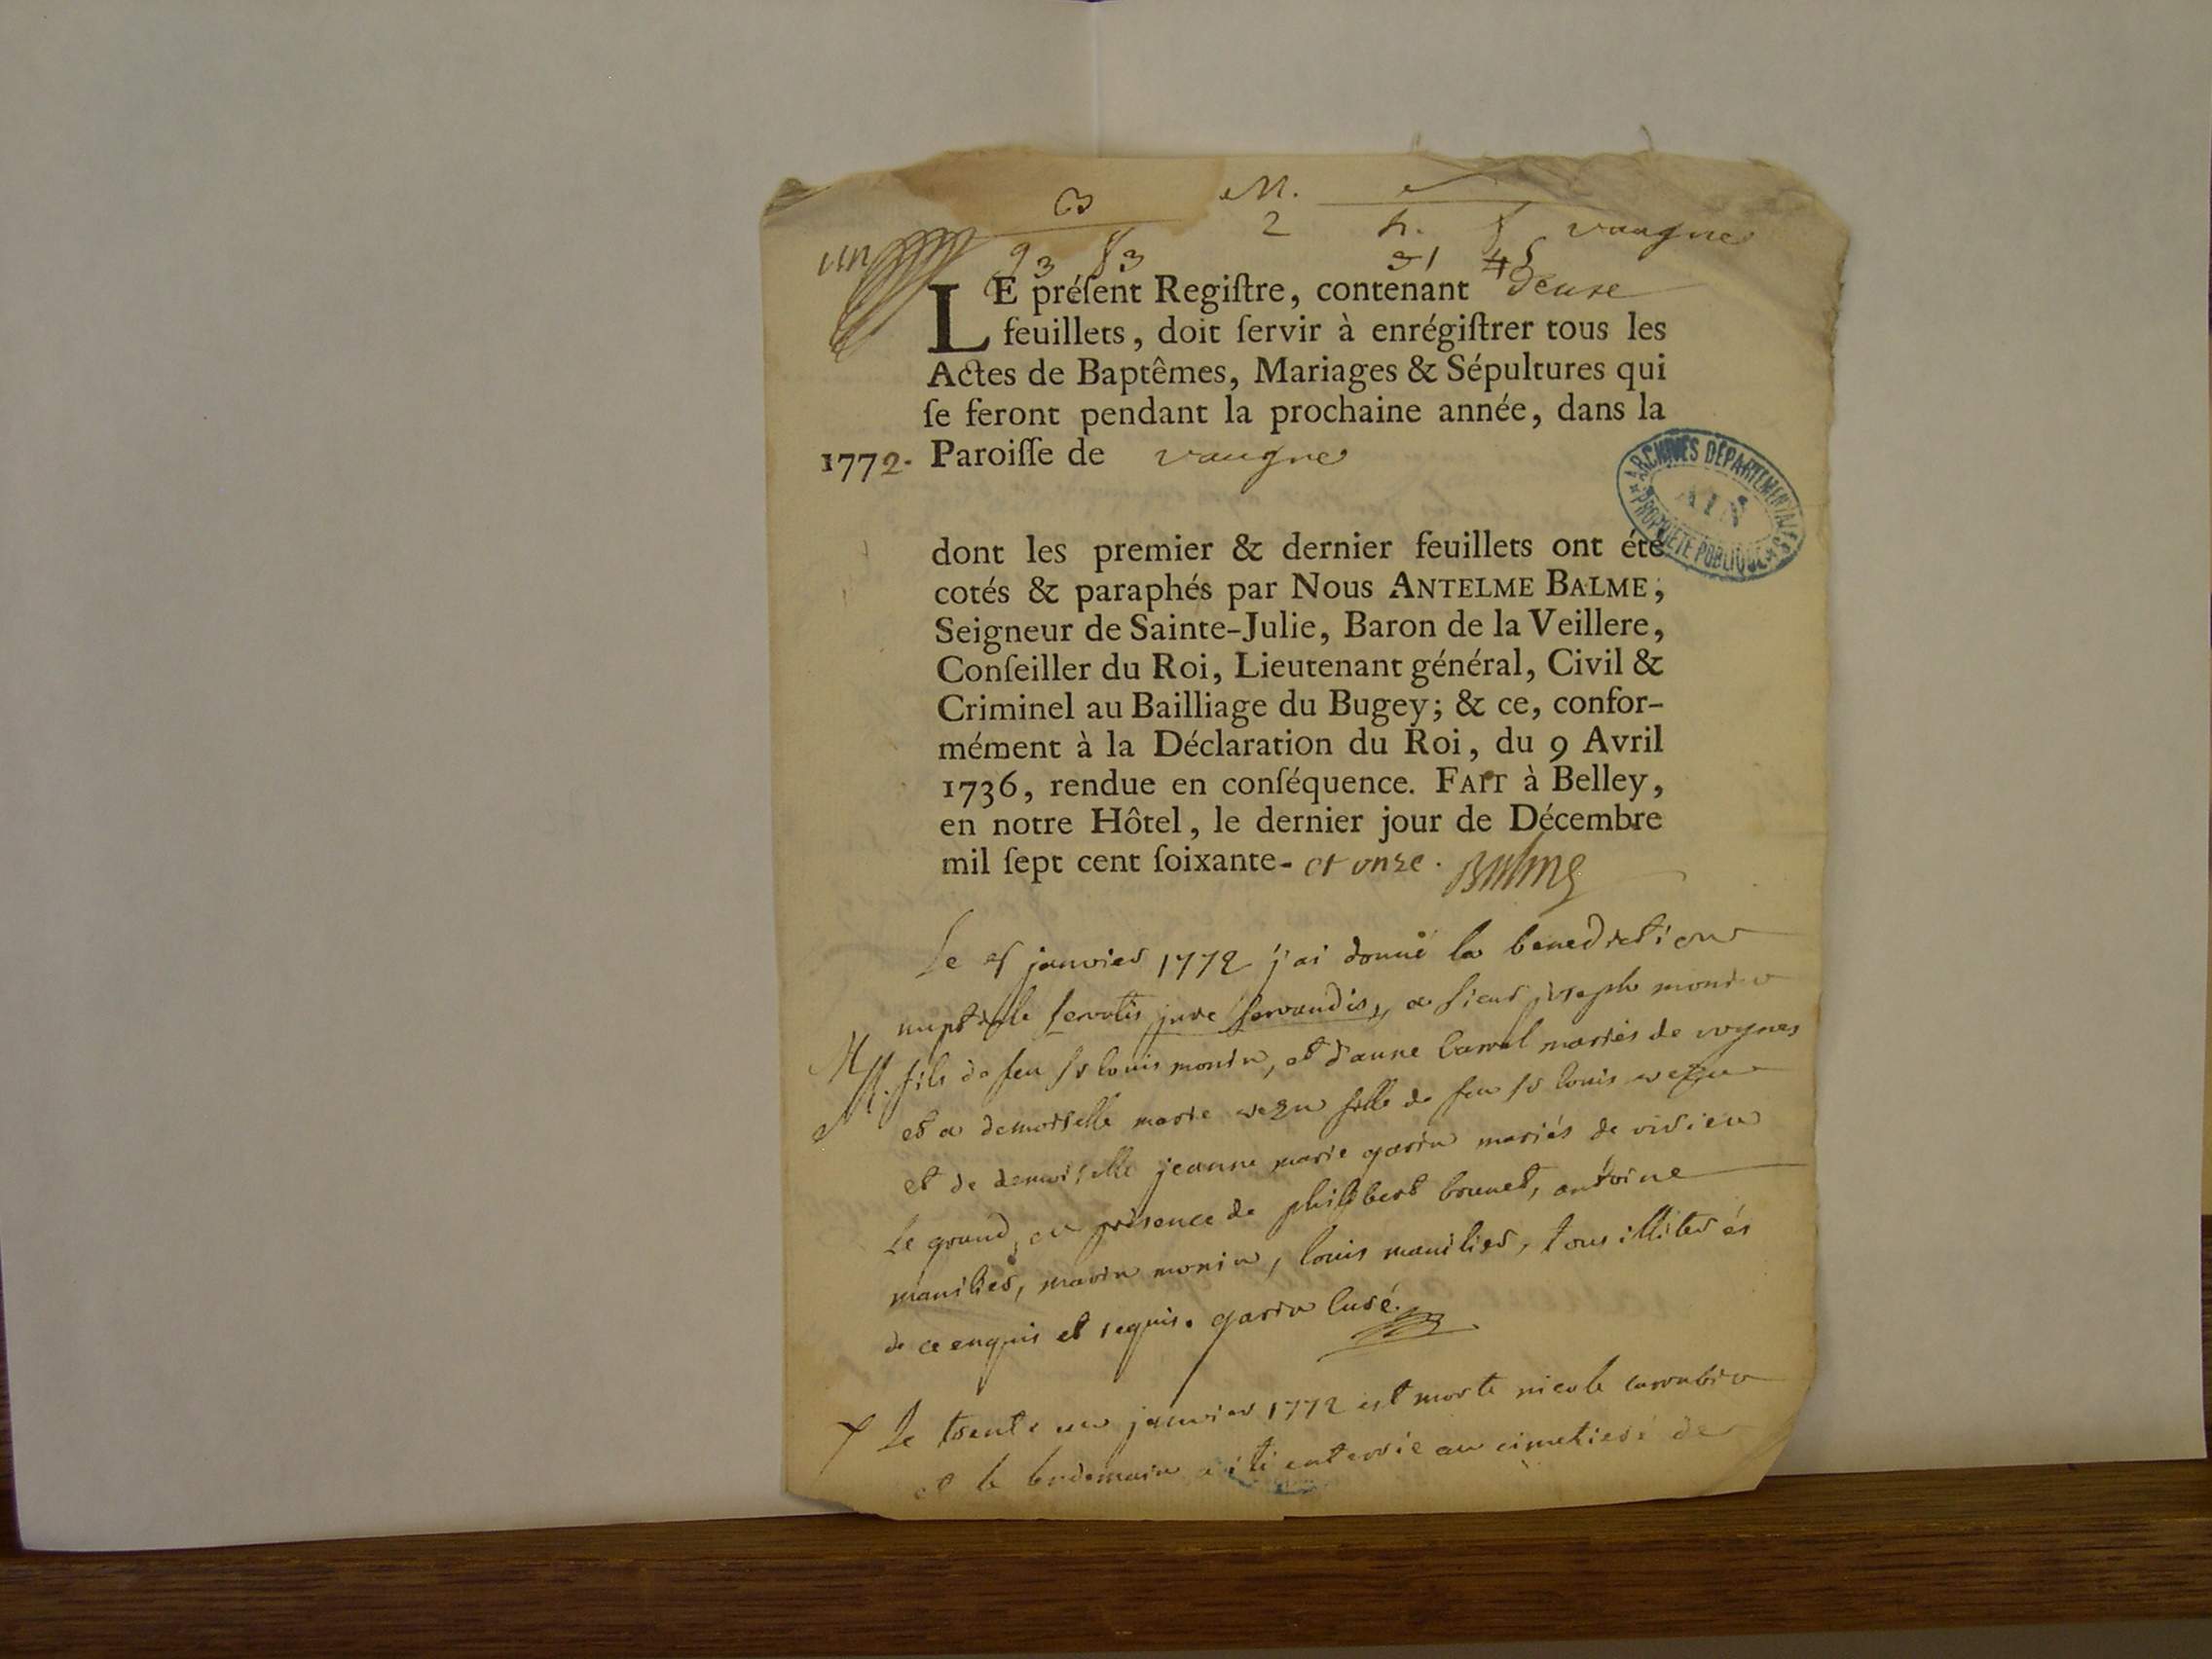 B M.
un 2 h. vaugne
93 83 31 45
LE préſent Regiſtre, contenant deuxe
feuillets, doit ſervir à enrégiſtrer tous les
Actes de Baptêmes, Mariages & Sépultures qui
ſe feront pendant la prochaine année, dans la
1772. Paroiſſe de vaugne
ARCHIVES DÉPARTEMENTALES
AIN
PROPRIÉTÉ PUBLIQUE
dont les premier & dernier feuillets ont été
cotés & paraphés par Nous ANTELME BALME,
Seigneur de Sainte-Julie, Baron de la Veillere,
Conſeiller du Roi, Lieutenant général, Civil &
Criminel au Bailliage du Bugey; & ce, confor-
mément à la Déclaration du Roi, du 9 Avril
1736, rendue en conſéquence. FAIT à Belley,
en notre Hôtel, le dernier jour de Décembre
mil ſept cent ſoixante- et onze. Balme
Le janvier 1772 j'ai donné la benediction
nuptiale servatis jure servandis, a sieur joseph monin
fils de feu sr louis monin, et d'anne mariés de
et a demoiselle marie fille de feu sr louis
et de demoiselle jeanne marie garin mariés de virieu
le grand, en présence de philibert brunet, antoine
manilier, marin monin, louis manilier, tous illiterés
de ce enquis et requis. garin curé.
Le trente un janvier 1772 est morte nicole
et le lendemain a été enterrée au cimetiere de